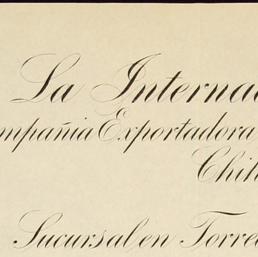 La Interna
mpañia Exportadora
Chih
Sucursal en Torre